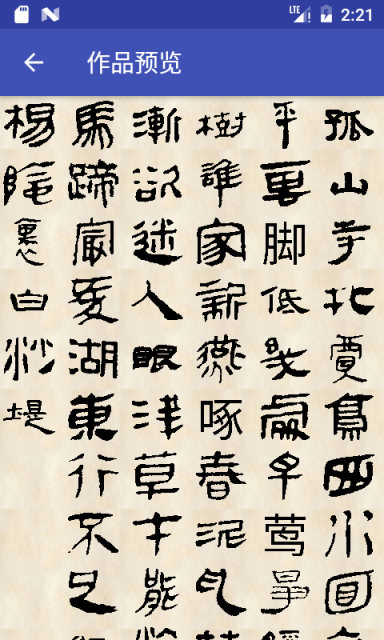 2:21
作品预览
孤山寺北賈亭西水面
平雲脚低幾處早莺爭
樹誰家新燕啄春泥乱
漸欲迷人眼浅草才能
馬蹄最爱湖東行不足
楊陰裏白沙堤